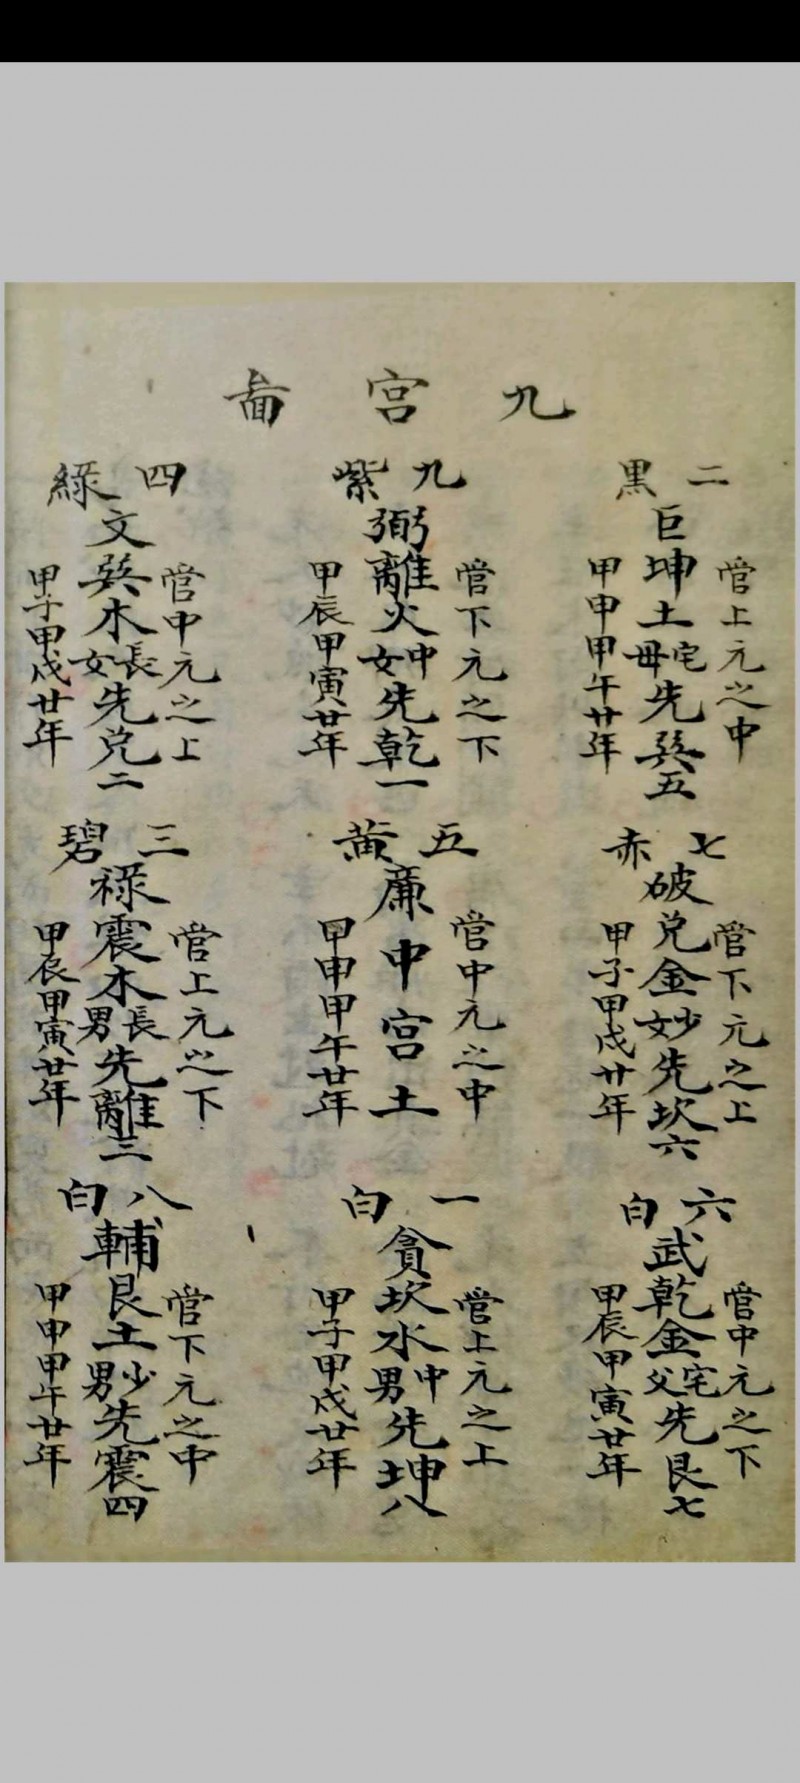 九宮啚
二黑
管上元之中
巨坤土宅母先巽五
甲申甲午廿年
九紫
管下元之下
弼離火中女先乾一
甲辰甲寅廿年
四綠
管中元之上
文巽木長女先兌二
甲子甲戌廿年
七赤
管下元之上
破兌金少女先坎六
甲子甲戌廿年
五黃
管中元之中
廉中宮土
甲申甲午廿年
三碧
管上元之下
祿震木長男先離三
甲辰甲寅廿年
六白
管中元之下
武乾金宅父先艮七
甲辰甲寅廿年
一白
管上元之上
貪坎水中男先坤八
甲子甲戌廿年
八白
管下元之中
輔艮土少男先震四
甲申甲午廿年